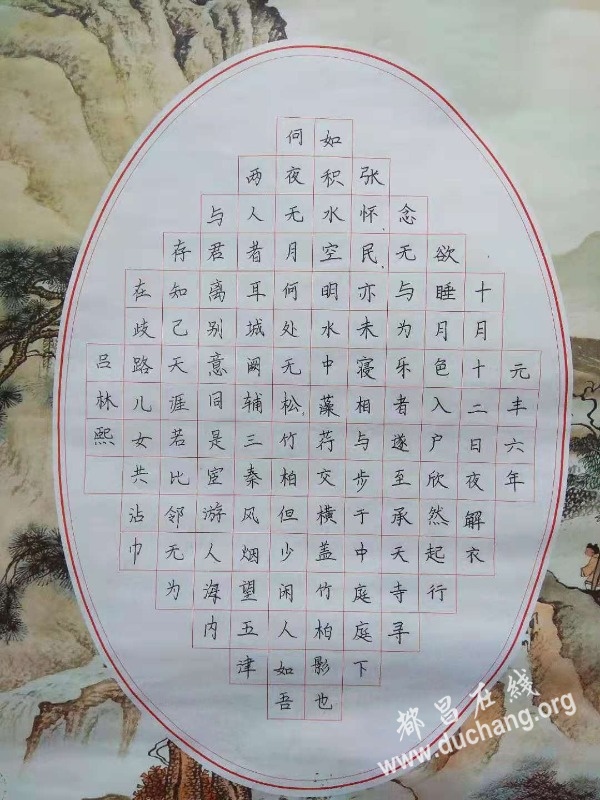 元丰六年
十月十二日夜解衣
欲睡月色入户欣然起行
念无与为乐者遂至承天寺寻
张怀民亦未寝相与步于中庭庭下
如积水空明水中藻荇交横盖竹柏影也
何夜无月何处无松竹柏但少闲人如吾
两人者耳城阙辅三秦风烟望五津
与君离别意同是宦游人海内
存知己天涯若比邻无为
在歧路儿女共沾巾
吕林熙
都昌在线
www.duchang.org